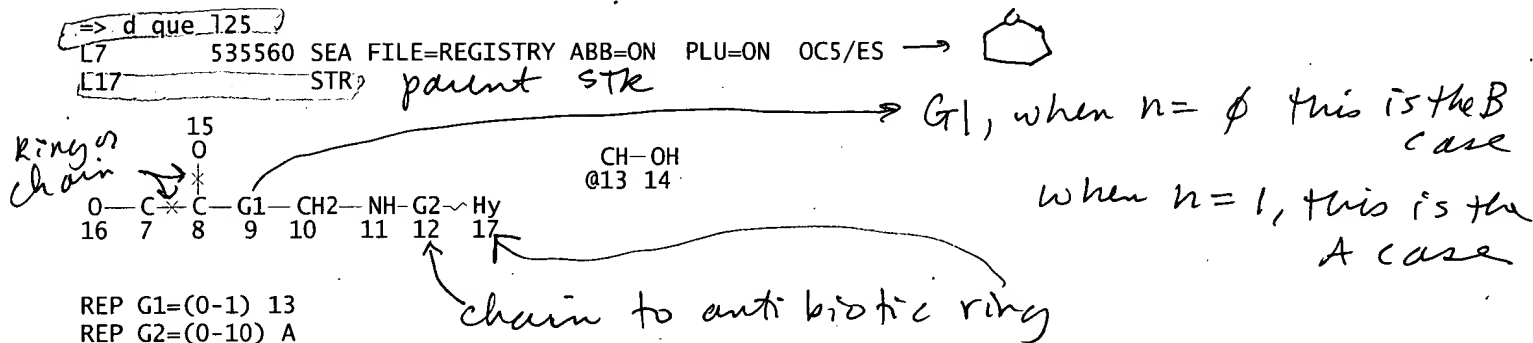 => d que l25
L7 535560 SEA FILE=REGISTRY ABB=ON PLU=ON OC5/ES
L17 STR
parent STR
G1, when n= ϕ this is the B case
when n=1, this is the A case
Ring or chain
15
O
CH-OH
@13 14
O-C-C-G1-CH2-NH-G2~Hy
16 7 8 9 10 11 12 17
chain to antibiotic ring
REP G1=(0-1) 13
REP G2=(0-10) A